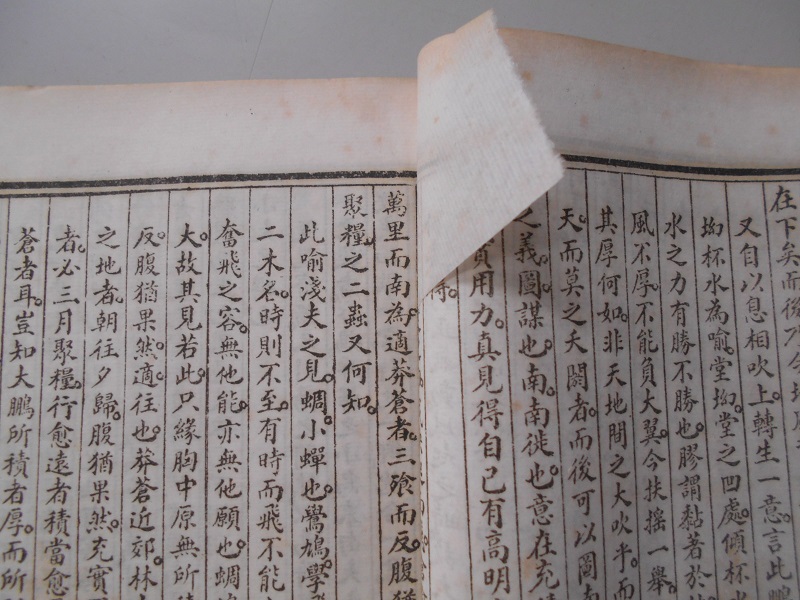 在下矣而後乃今
又自以息相吹上。轉生一意。言此鵬
坳杯水為喻。堂坳堂之凹處。傾杯水
水之力有勝不勝也。膠謂黏著於
風不厚。不能負大翼。今扶搖一舉。
其厚何如。非天地間之大吹乎。而
天。而莫之夭閼者。而後可以圖南
之義。圖謀也。南。南徙也。意在充
實用力。真見得自己有高明
得。
萬里而南為。適莽蒼者。三飡而反。腹猶
聚糧。之二蟲又何知。
此喻淺夫之見。蜩。小蟬也。鷽鳩。學飛
二木名。時則不至。有時而飛不能
奮飛之容。無他能。亦無他願也。蜩
大。故其見若此。只緣胸中原無所
反。腹猶果然。適。往也。莽蒼近郊。林
之地者。朝往夕歸。腹猶果然。充實
者。必三月聚糧。行愈遠者積當愈
蒼者耳。豈知大鵬所積者厚。而所